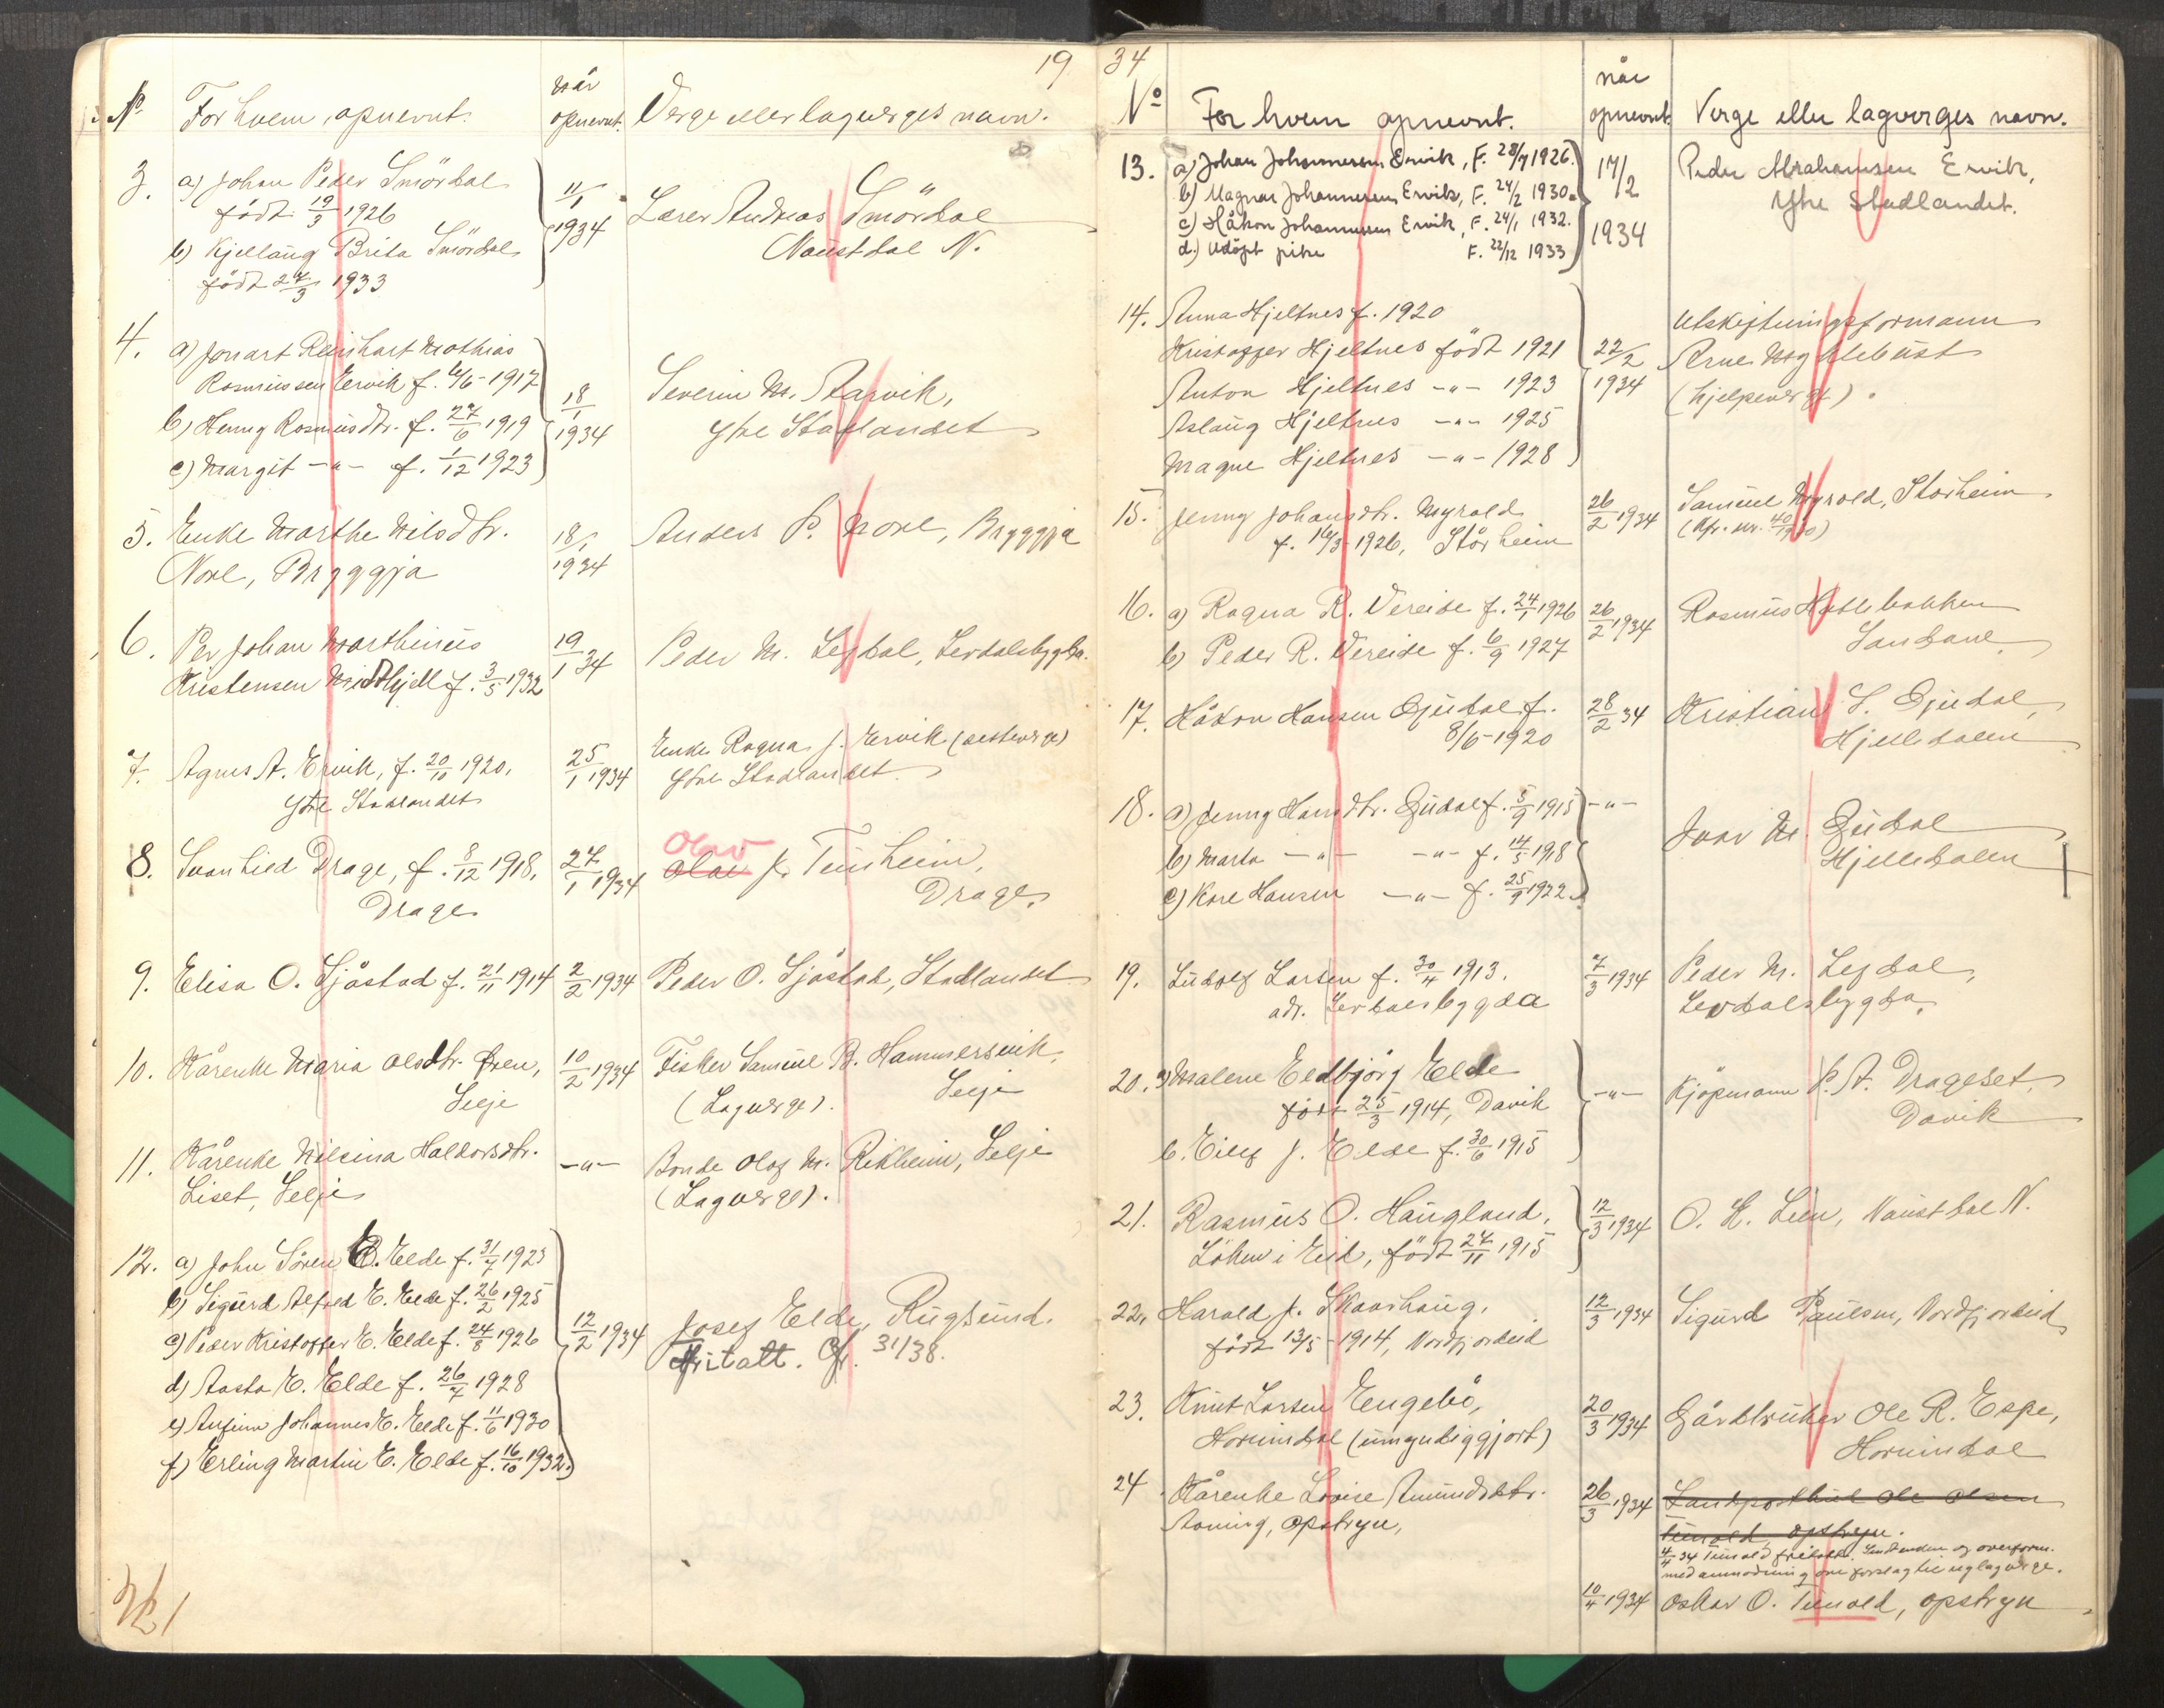 19
No
For hvem opnevnt.
når
opnevnt.
Verge eller lagverges navn.
3.
a) Johan Peder Smørdal
født 19/3 1926
b) Kjellaug Brita Smørdal
født 24/3 1933
11/1
1934
Lærer Andreas Smørdal
Naustdal N.
4.
a) Jonart Reinhart Mathias
Rasmussen Ervik f. 4/6 1917
b) Henny Rasmusdtr. f. 27/6 1919
c) Margit -"- f. 1/12 1923
18/1
1934
Severin M. Aarvik,
Ytre Stadlandet
5.
Enke Marthe Nilsdtr.
Nore, Bryggja
18/1
1934
Anders P. Nore, Bryggja
6.
Per Johan Marthinus
Kristensen Midthjell f. 3/5 1932
19/1 34
Peder M. Legdal, Lerdalsbygda.
7.
Agnes A. Ervik, f. 20/10 1920,
Ytre Stadlandet
25/1 1934
Enke Ragna J. Ervik
Ytre Stadlandet
8.
Svanhild Drage, f. 8/12 1918,
Drage
27/1 1934
Olav
Olai J. Tunheim,
Drage.
9.
Elisa O. Sjåstad f. 21/11 1914
2/2 1934
Peder O. Sjåstad, Stadlandet
10.
Kårenke Maria Olsdtr. Øren,
Selje
10/2 1934
Fisker Samuel B. Hammersvik,
(Lagverge).
Selje
11.
Kårenke Nilsina Haldorsdtr.
Liset, Selje
-"-
Bonde Olaf M. Rikheim, Selje
(Lagverge).
12.
a) John Søren E. Elde f. 31/7 1923
b) Sigurd Alfred E. Elde f. 26/2 1925
c) Peder Kristoffer E. Elde f. 24/8 1926
d) Aasta E. Elde f. 26/7 1928
e) Anfinn Johannes E. Elde f. 11/6 1930
f) Erling Martin E. Elde f. 16/10 1932.
12/2 1934
Josef Elde, Rugsund.
Fritatt. Cfr. 31/38.
34
No
For hvem opnevnt.
når
opnevnt.
Verge eller lagverges navn.
13.
a) Johan Johannessen Ervik, F. 28/7 1926.
b) Magnar Johannessen Ervik, F. 24/2 1930.
c) Håkon Johannessen Ervik, F. 24/1 1932.
d.) Udöpt pike F. 22/12 1933
17/2
1934
Peder Abrahamsen Ervik,
Ytre Stadlandet.
14.
Anna Hjeltnes f. 1920
Kristoffer Hjeltnes født 1921
Anton Hjeltnes -"- 1923
Aslaug Hjeltnes -"- 1925
Magne Hjeltnes -"- 1928
22/2
1934
Utskiftningsformann
Arne Myklebust
(hjelpeverge).
15.
Jenny Johansdtr. Myrold
f. 16/3 1926, Stårheim
26/2 1934
Samuel Myrold, Stårheim
(Cfr. nr. 40/1930)
16.
a) Ragna R. Vereide f. 24/1 1926
b) Peder R. Vereide f. 6/9 1927
26/2 1934
Rasmus Hatlebakken
Sandane.
17.
Håkon Hansen Gjudal f.
8/6-1920
28/2 34
Kristian S. Gjudal,
Hjelledalen
18.
a) Jenny Hansdtr. Gudal f. 5/9 1915
b) Marta -"- -"- f. 14/5 1918
c) Kåre Hansen -"- f. 25/9 1922.
-"-
Ivar M. Gudal
Hjelledalen
19.
Ludolf Larsen f. 30/4 1913.
adr. Lerdalsbygda
7/3 1934
Peder M. Legdal,
Lerdalsbygda.
20.
a) Malene Eldbjørg Elde
født 25/3 1914, Davik
b. Eilif J. Elde f. 30/6 1915
-"-
Kjøpmann P. A. Drageset
Davik
21.
Rasmus O. Haugland,
Løken i Eid, født 27/11 1915
12/3 1934
O. H. Lien, Naustdal N.
22.
Harald J. Skaarhaug,
født 13/5-1914, Nordfjordeid
12/3 1934
Sigurd Paulsen, Nordfjordeid
23.
Knut Larsen Engebø,
Hornindal (umyndiggjort)
20/3 1934
Gårdbruker Ole R. Espe,
Hornindal
24
Kårenke Lovise Amundsdtr.
Aaning, Opstryn,
26/3 1934
Landpostbud Ole Olsen
Tunold, Opstryn.
4/4 34 Tunold fritatt. overform.
med anmodning om forslag til ny lagverge.
10/4 1934
Oskar O. Tunold, Opstryn